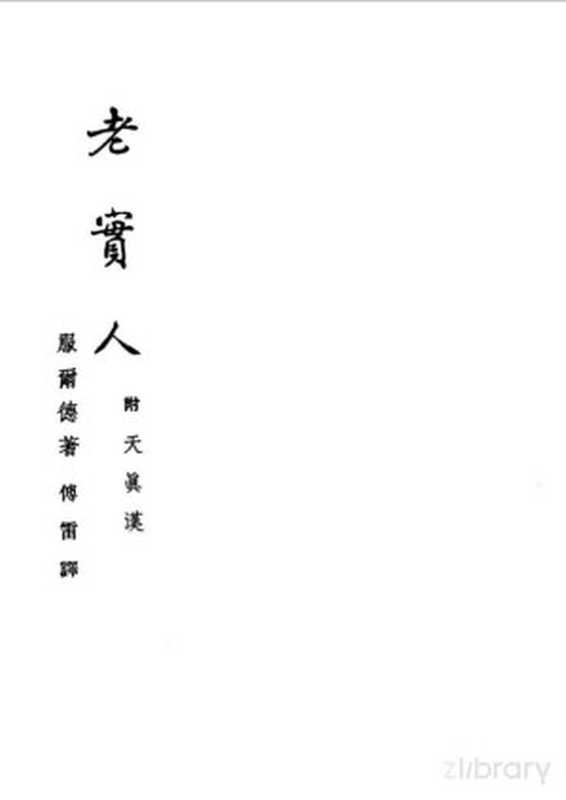 老實人
附 天眞漢
服爾德著 傅雷譯
zlibrary